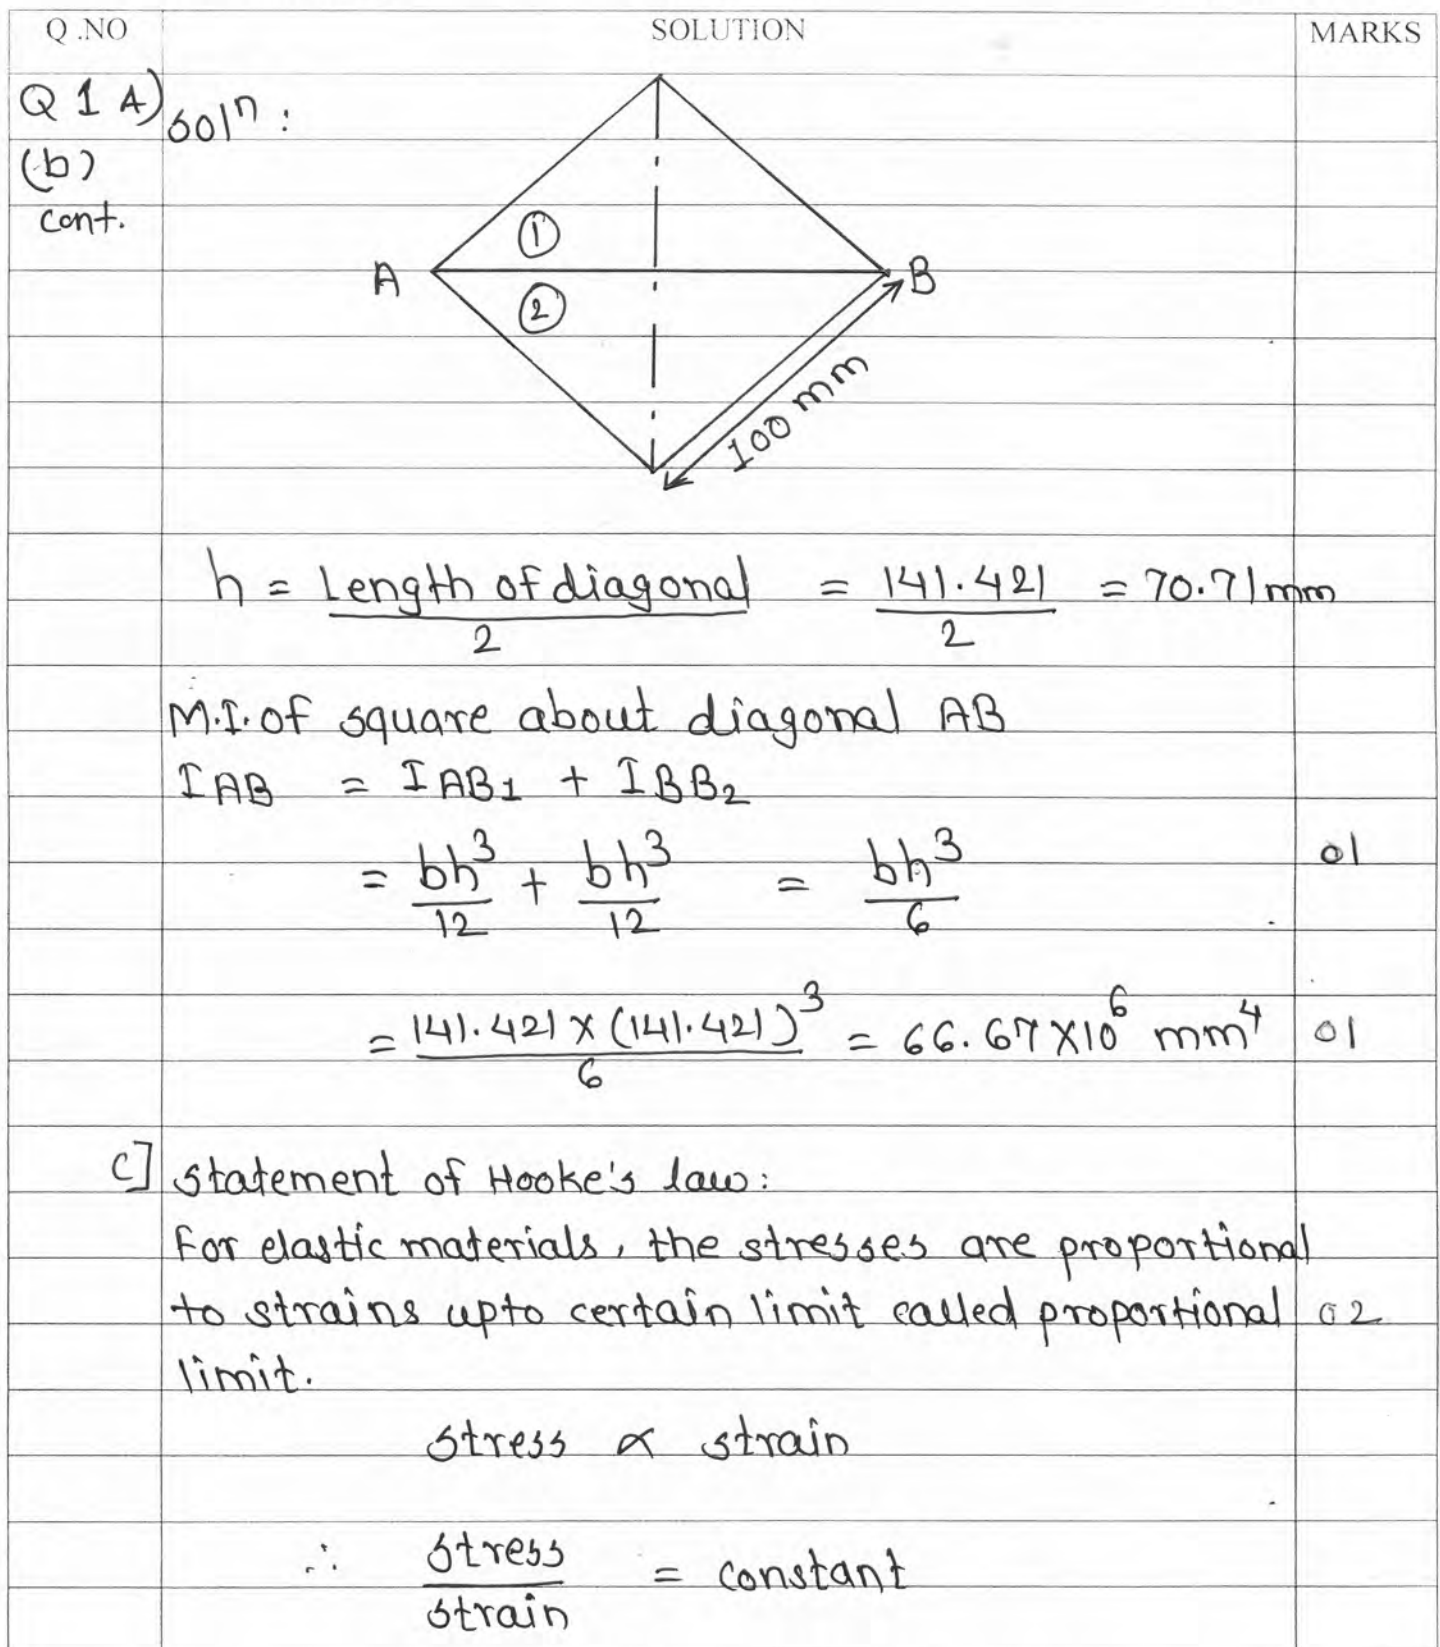 Q .NO SOLUTION MARKS
Q 1 A) solⁿ :
(b)
cont.
①
A B
②
100 mm
h = Length of diagonal / 2 = 141.421 / 2 = 70.71 mm
M.I. of square about diagonal AB
IAB = IAB1 + IBB2
= bh³/12 + bh³/12 = bh³/6 01
= 141.421 × (141.421)³ / 6 = 66.67 × 10⁶ mm⁴ 01
C] Statement of Hooke's law:
For elastic materials, the stresses are proportional
to strains upto certain limit called proportional 02
limit.
stress ∝ strain
∴ stress / strain = constant